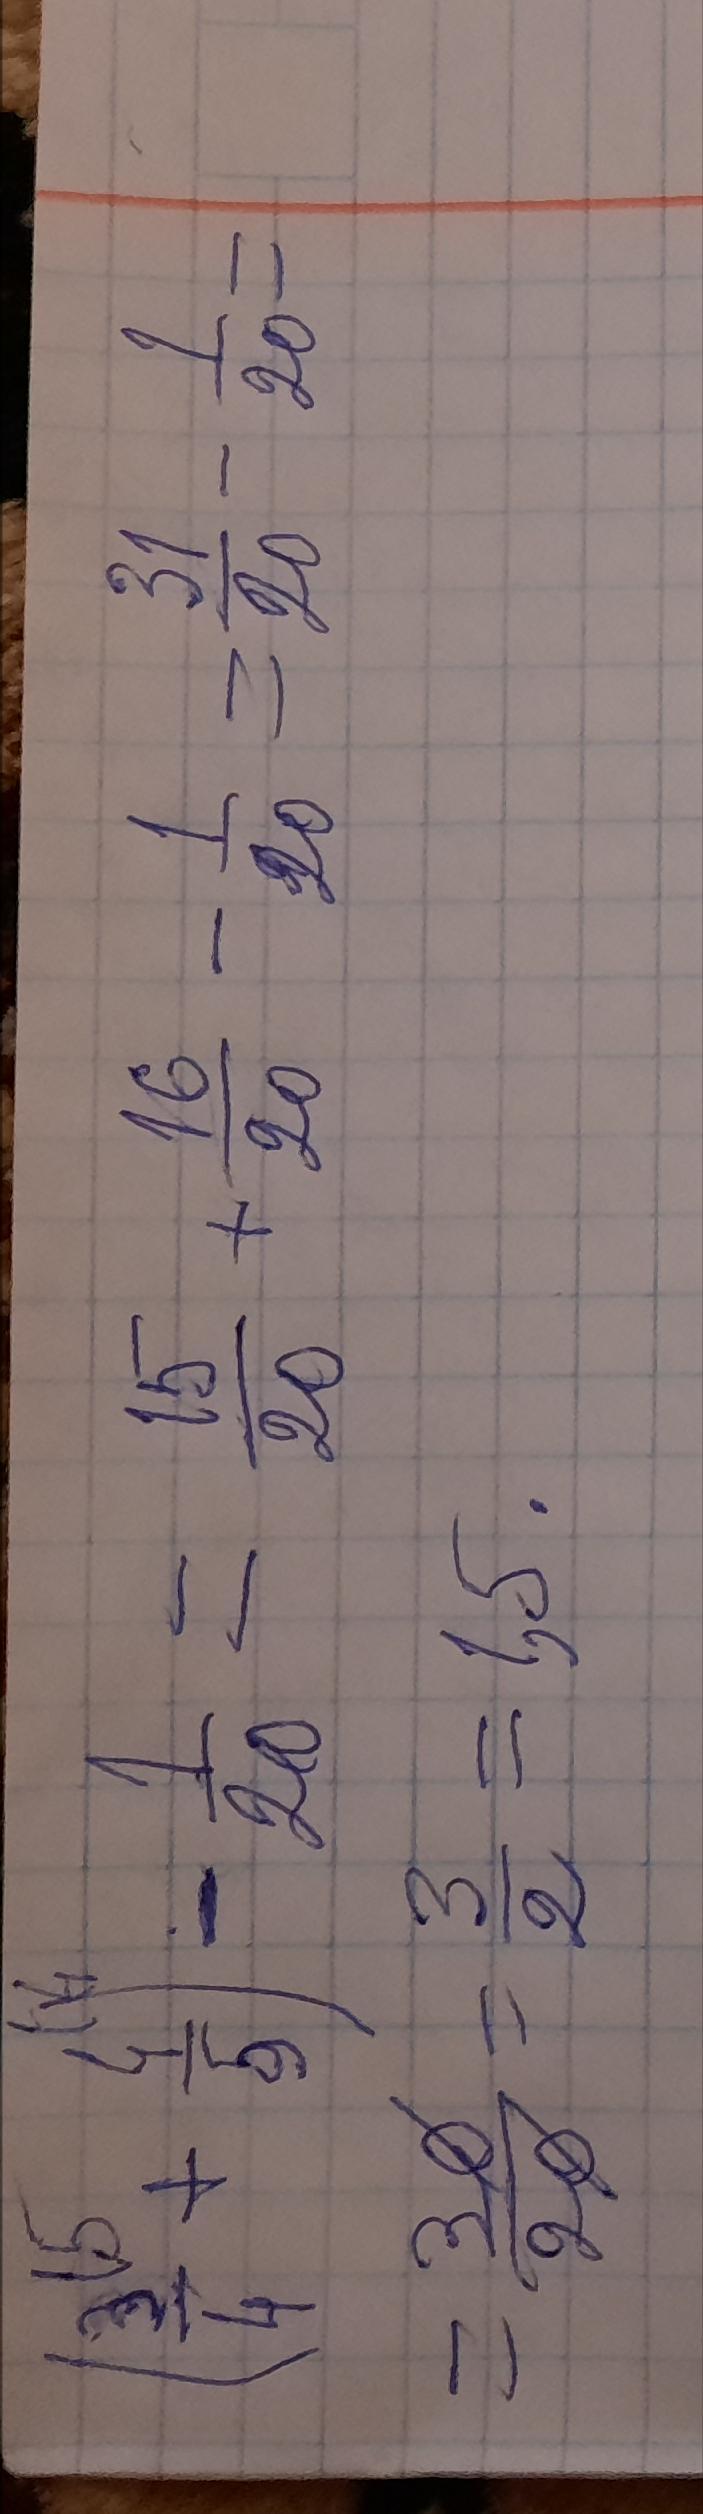 (3/4 \5 + 4/5 \4) - 1/20 = 15/20 + 16/20 - 1/20 = 31/20 - 1/20 =
= 30/20 = 3/2 = 1,5.